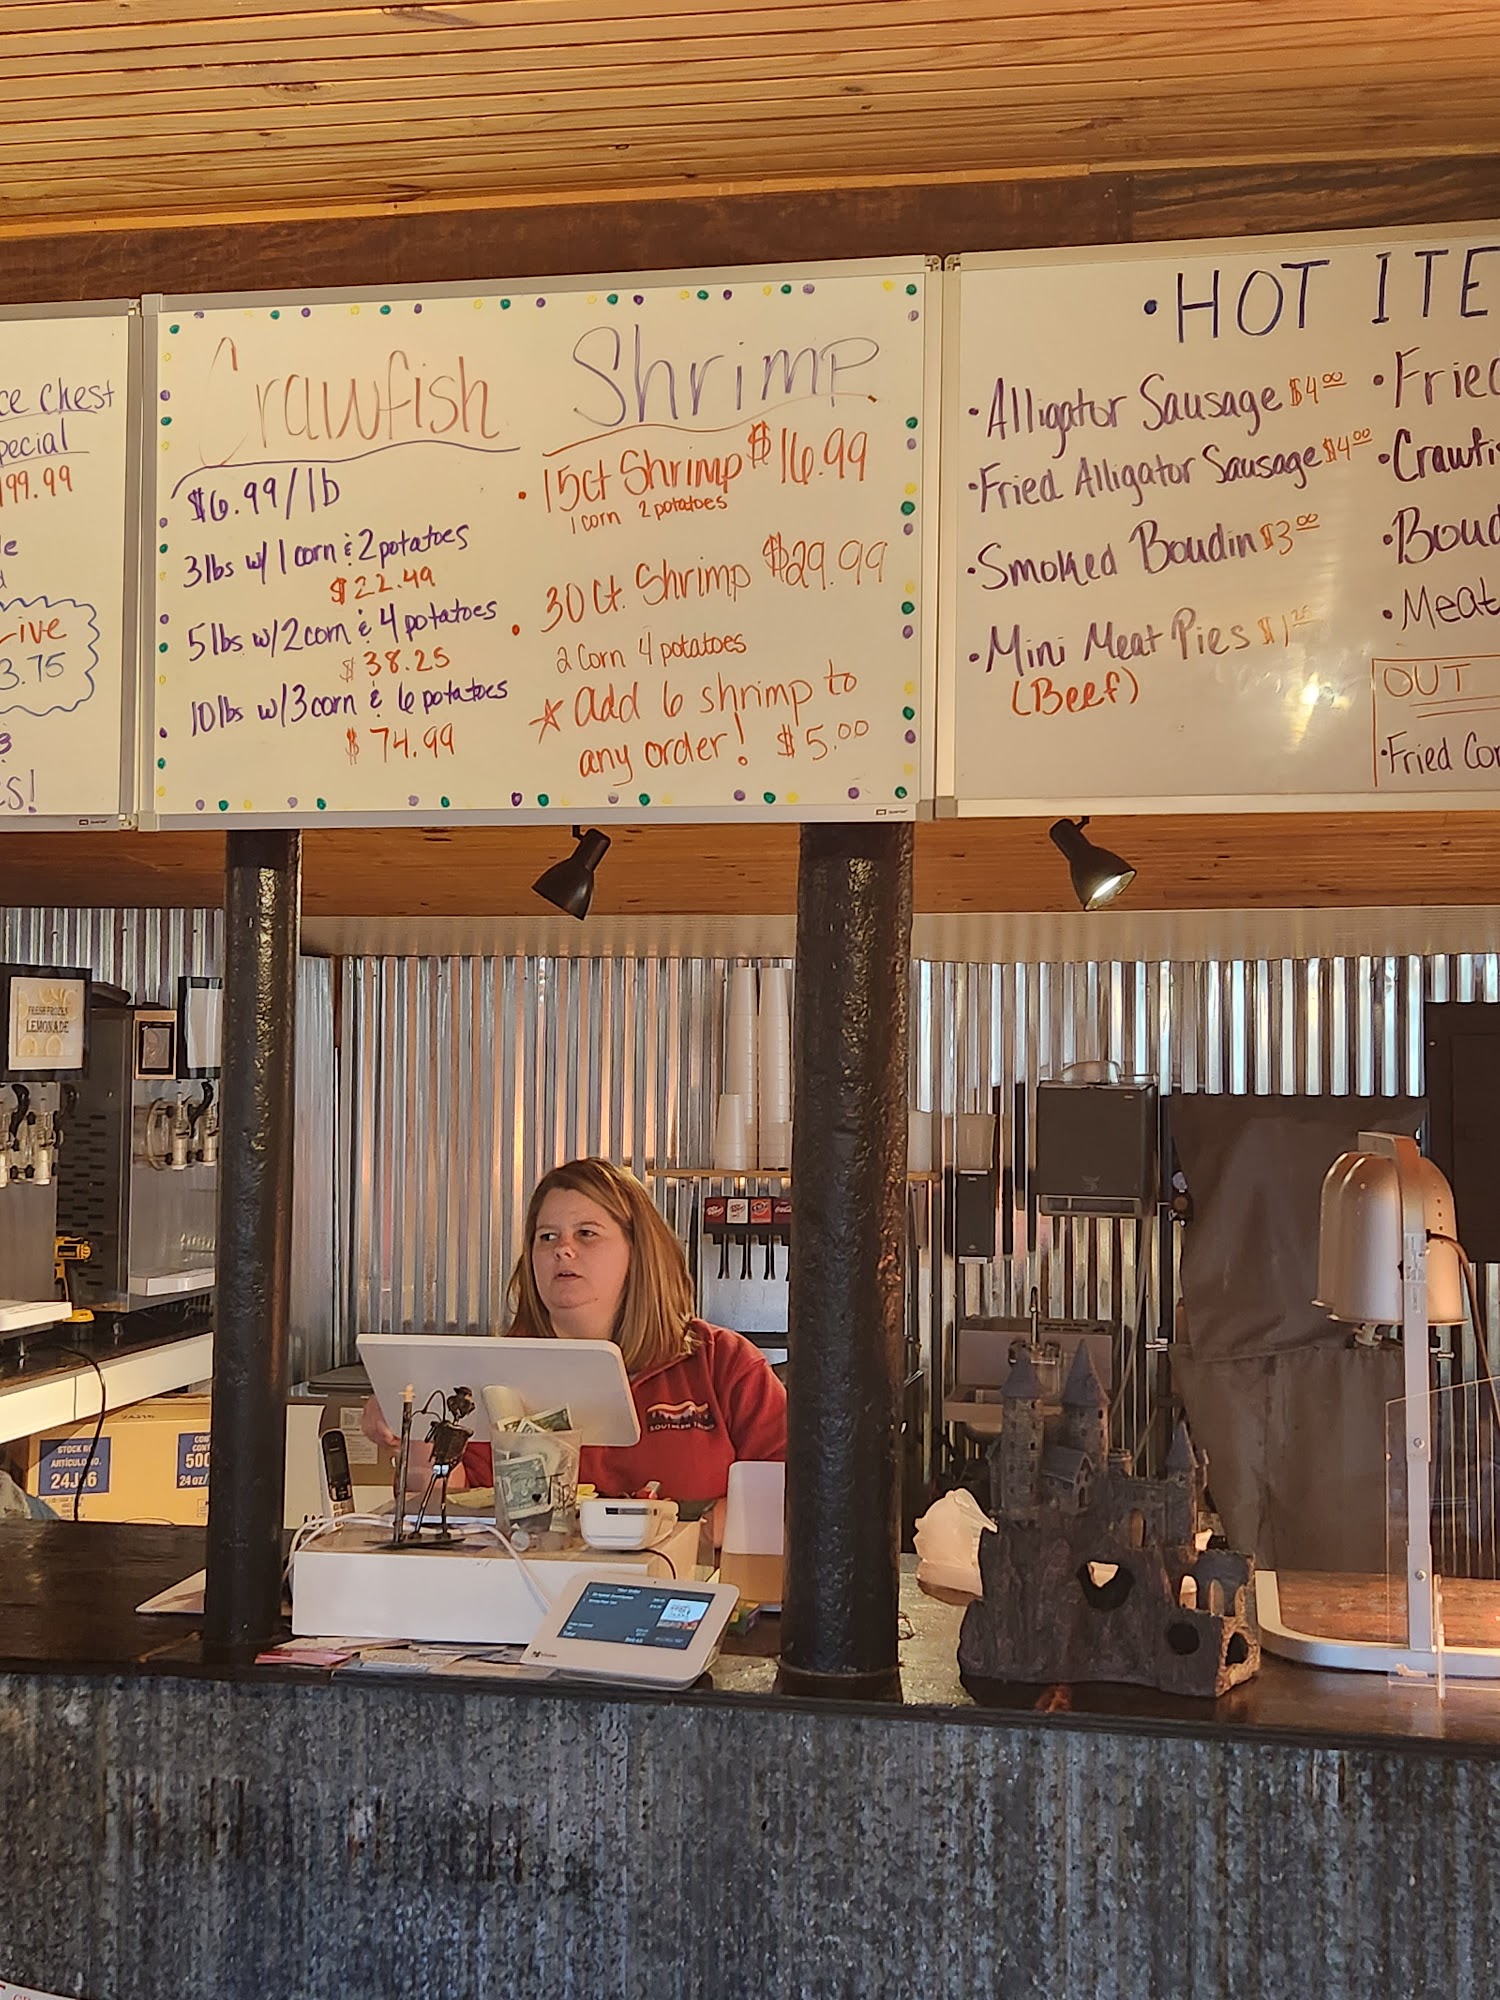 ce chest
pecial
199.99
ive
3.75
Crawfish
$6.99/lb
3lbs w/ 1 corn & 2 potatoes
$22.49
5lbs w/ 2 corn & 4 potatoes
$38.25
10lbs w/ 3 corn & 6 potatoes
$74.99
Shrimp
• 15ct Shrimp $16.99
1 corn 2 potatoes
• 30 Ct. Shrimp $29.99
2 Corn 4 potatoes
☆ Add 6 shrimp to
any order! $5.00
• HOT ITE
• Alligator Sausage $4.00
• Fried Alligator Sausage $4.00
• Smoked Boudin $3.00
• Mini Meat Pies $1.25
(Beef)
• Fried
• Crawfi
• Boud
• Meat
OUT
• Fried Cor
FRESH FROZEN
LEMONADE
STOCK NO.
ARTÍCULO NO.
24J16
500
24oz/
SOUTHERN